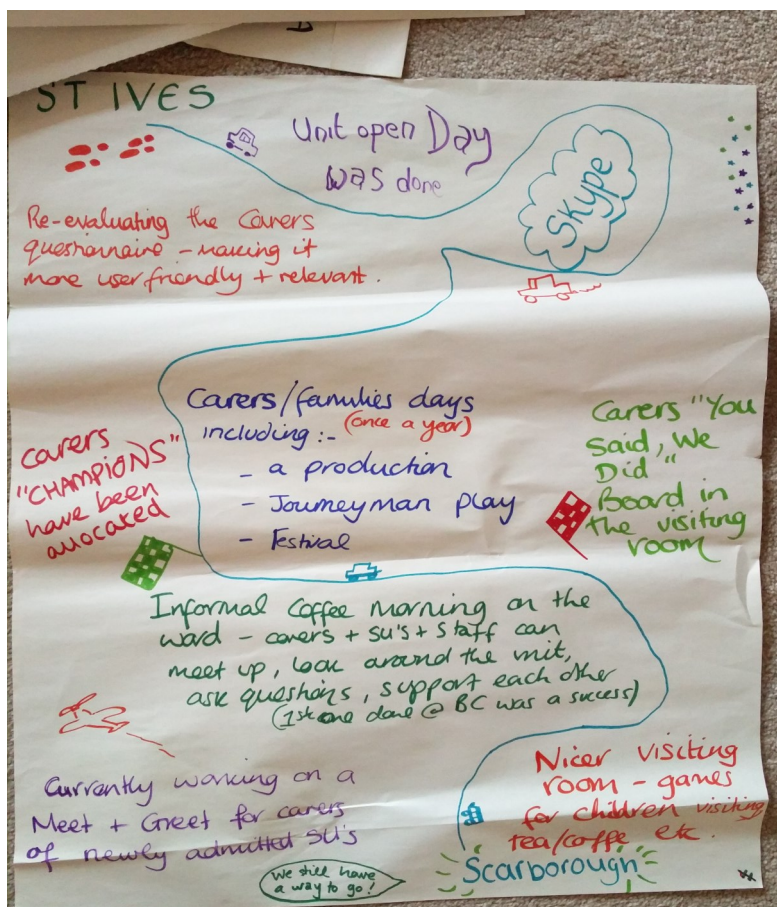 ST IVES
Unit open Day
was done
Skype
Re-evaluating the Carers
questionnaire - making it
more user friendly + relevant.
Carers/families days
including:- (once a year)
- a production
- Journeyman play
- Festival
Carers
"CHAMPIONS"
have been
allocated
Carers "You
Said, We
Did"
Board in
the visiting
room
Informal coffee morning on the
ward - carers + SU's + Staff can
meet up, look around the unit,
ask questions, support each other
(1st one done @ BC was a success)
Currently working on a
Meet + Greet for carers
of newly admitted SU's
Nicer visiting
room - games
for children visiting
tea/coffe etc.
We still have
a way to go!
Scarborough